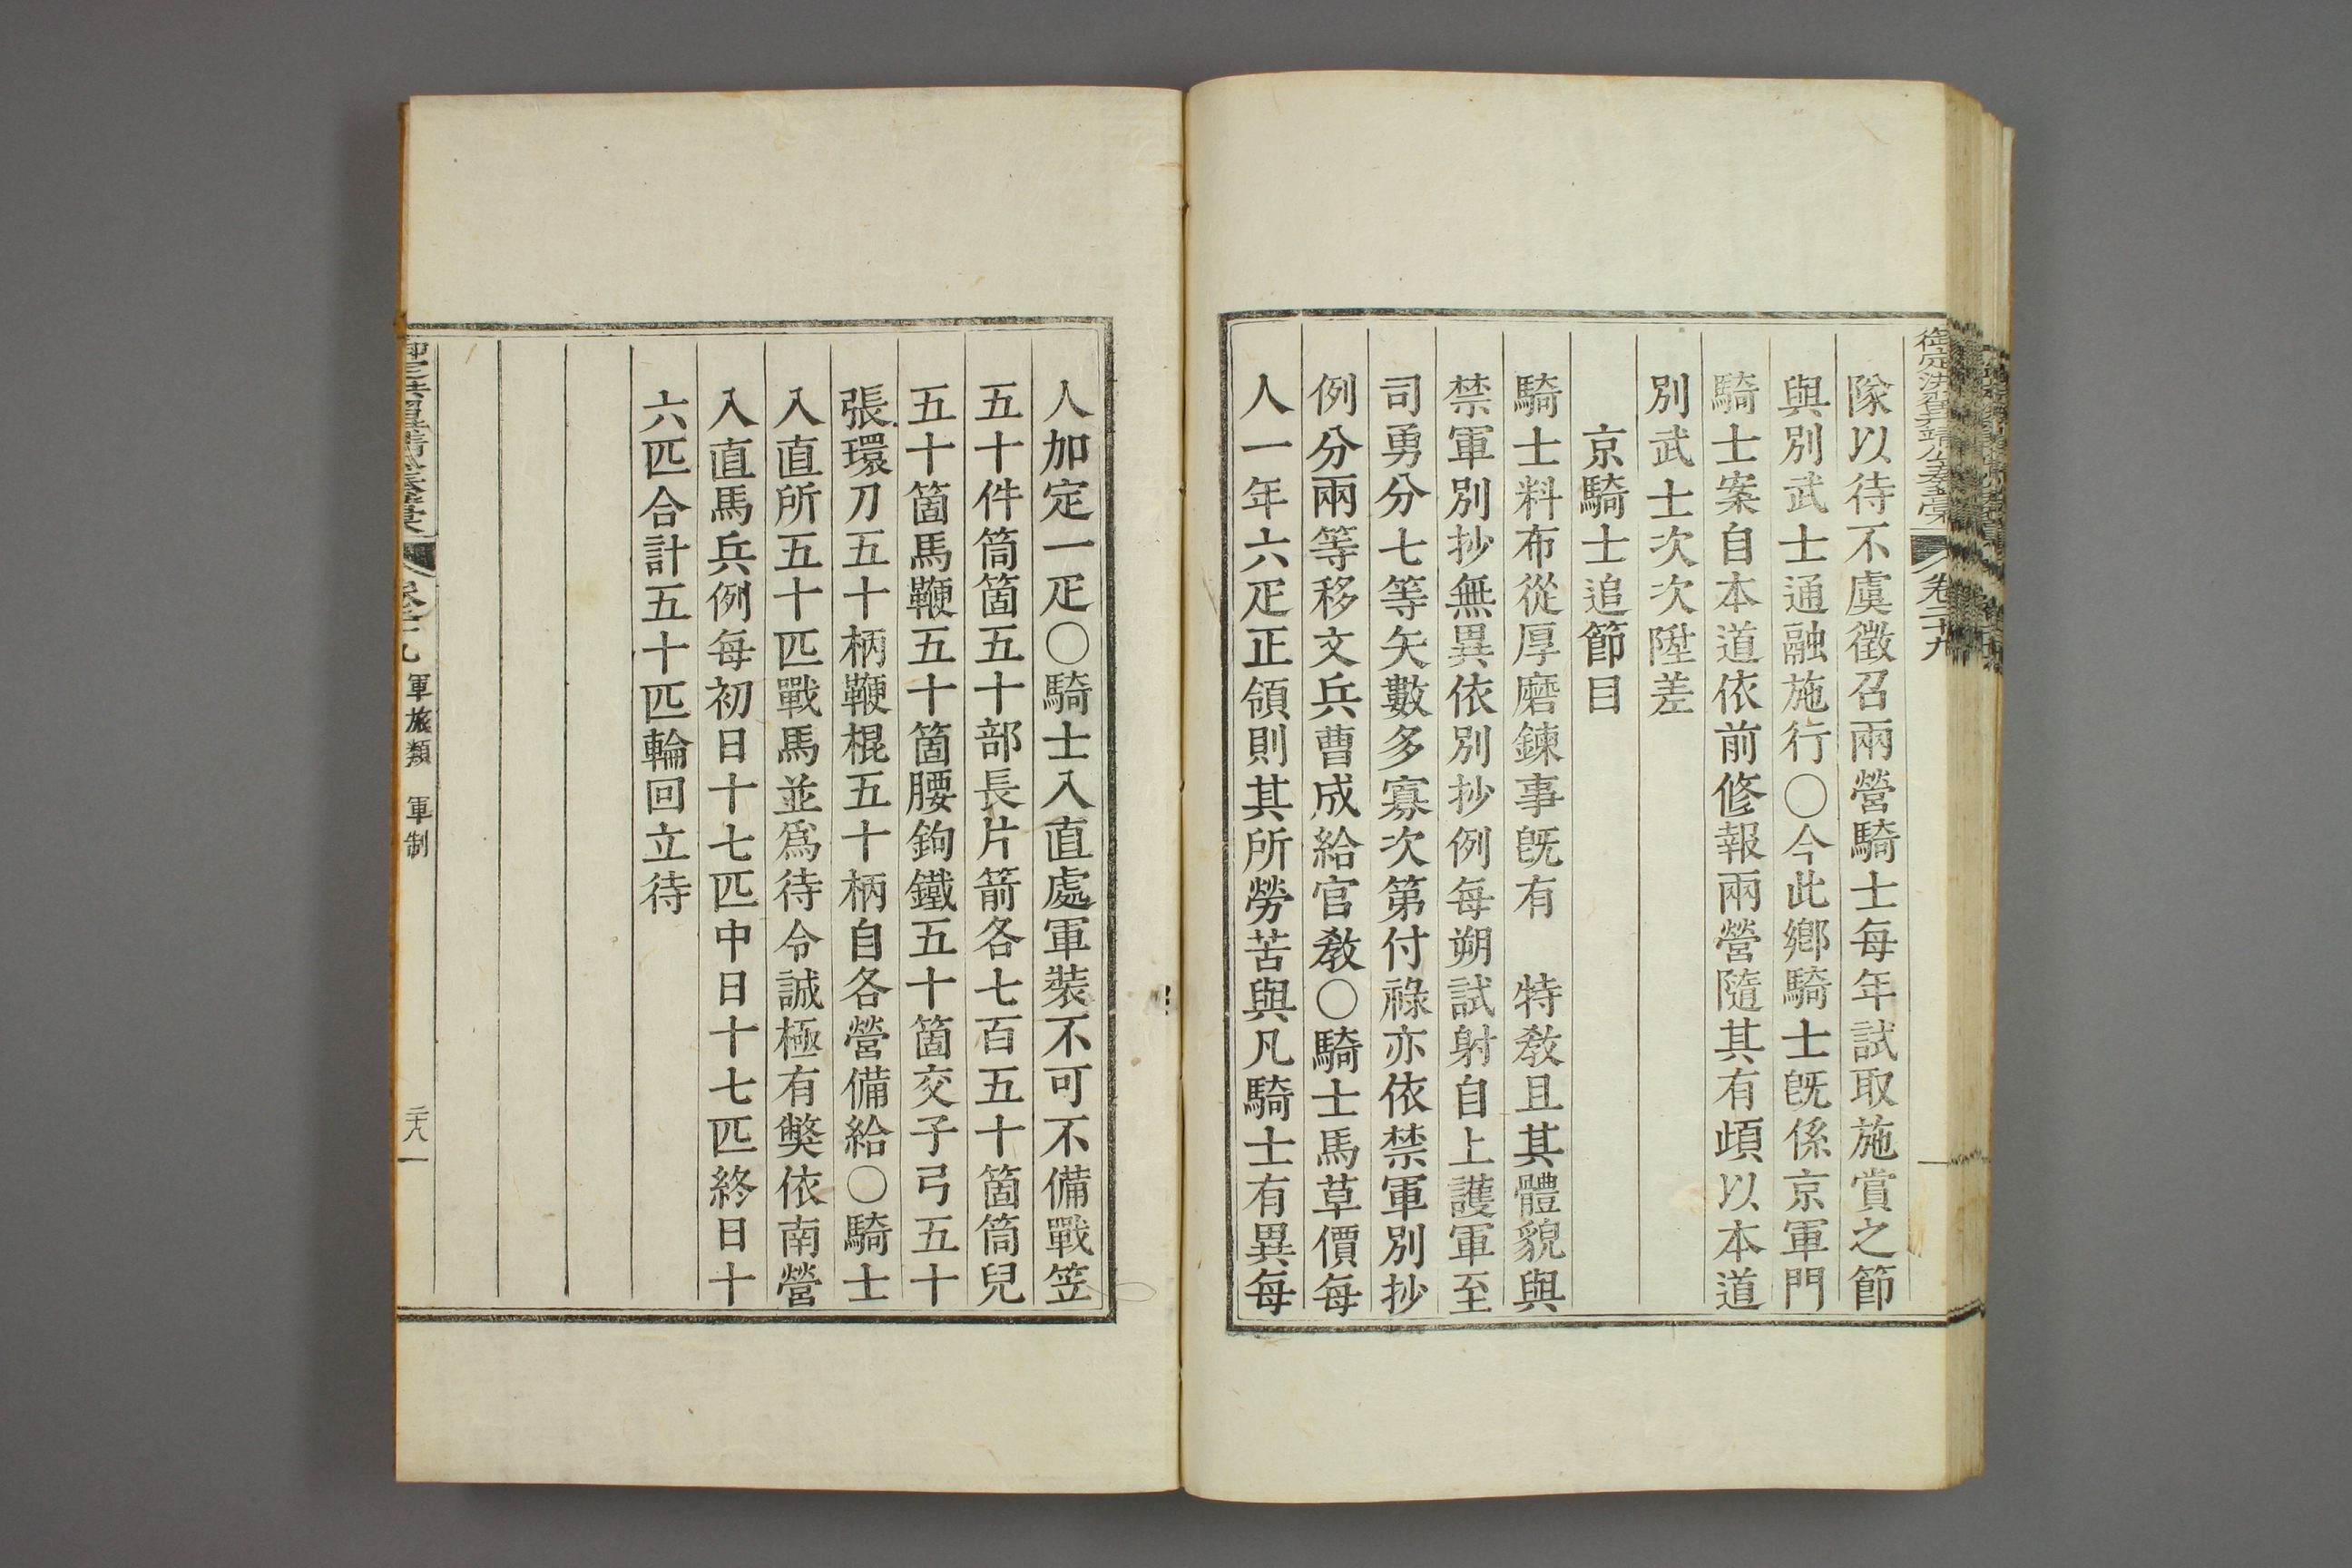 隊以待不虞徵召兩營騎士每年試取施賞之節
與別武士通融施行○今此鄕騎士旣係京軍門
騎士案自本道依前修報兩營隨其有頉以本道
別武士次次陞差
京騎士追節目
騎士料布從厚磨鍊事旣有　特敎且其體貌與
禁軍別抄無異依別抄例每朔試射自上護軍至
司勇分七等矢數多寡次第付祿亦依禁軍別抄
例分兩等移文兵曹成給官敎○騎士馬草價每
人一年六疋正領則其所勞苦與凡騎士有異每
人加定一疋○騎士入直處軍裝不可不備戰笠
五十件筒箇五十部長片箭各七百五十箇筒兒
五十箇馬鞭五十箇腰鉤鐵五十箇交子弓五十
張環刀五十柄鞭棍五十柄自各營備給○騎士
入直所五十匹戰馬並爲待令誠極有弊依南營
入直馬兵例每初日十七匹中日十七匹終日十
六匹合計五十匹輪回立待
軍旅類　軍制